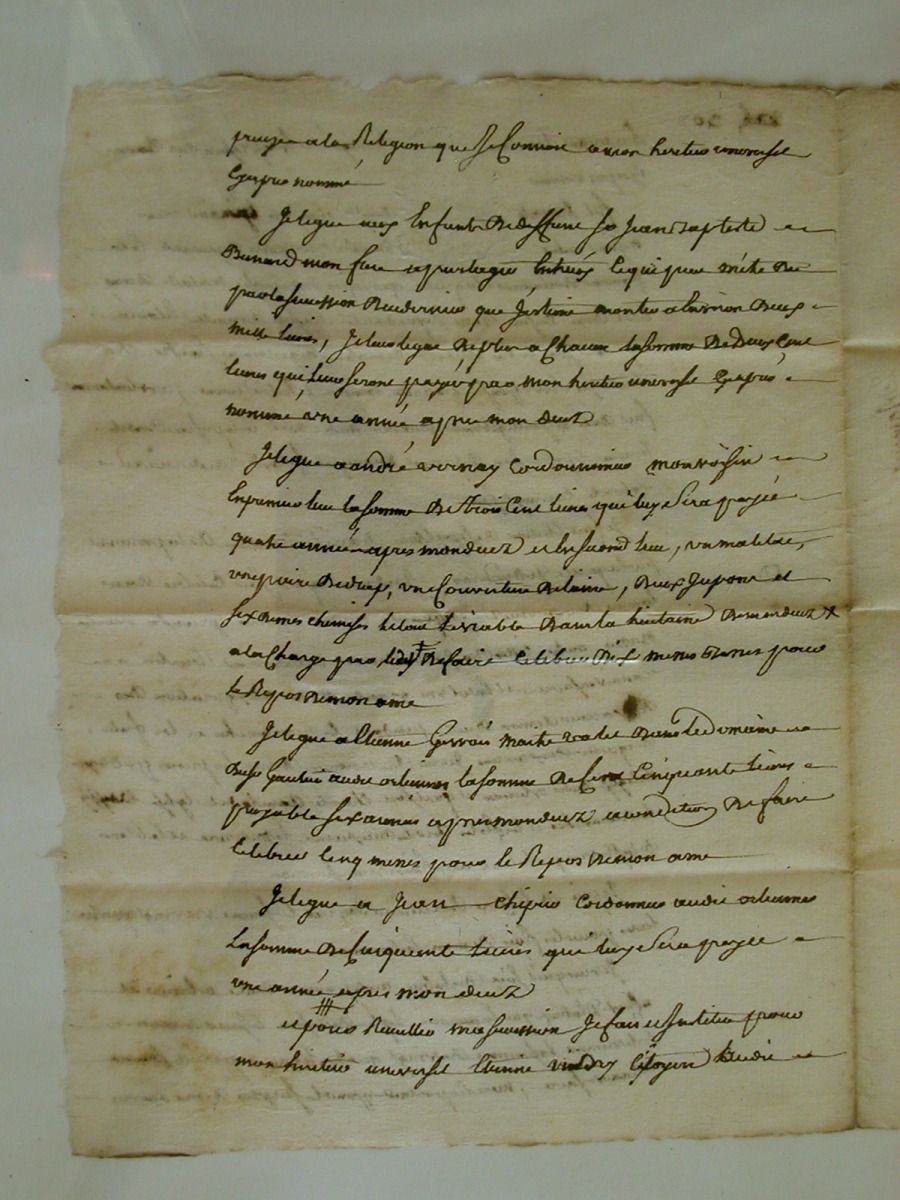 a la Religion que Je a mon heritier universel
Cy apres nommé
Je legue aux Enfants De deffunt Sr Jean Baptiste
mon frere a partager Entreux Ce qui peut m'etre Du
par la succession Du dernier que J'estime monter a Environ Deux
mille livres, Je leur legue De plus a Chacun la somme De Deux Cent
livres qui Leur seront payés par mon heritier universel Cy apres
nommé une année apres mon decez
Je legue a andré vernay Cordonnier mon voisin
En premier lieu la somme De trois Cent livres qui luy Sera payée
quatre années apres mon decez et En second lieu, un matelat,
une paire De drap, une Couverture De laine, Deux Jupons et
six Demes chemises le tout livrable Dans la huitaine De mon decez X
a la Charge par De faire Celebrer Dix messes basses pour
le Repos De mon ame
Je legue a Etienne Gervais maitre valet Dans le Domaine
Du Sr Gautier audit orlienas la somme De Cent Cinquante livres
payable six années apres mon decez a condition De faire
Celebrer Cinq messes pour le Repos De mon ame
Je legue a Jean Cordonnier audit orlienas
la somme De Cinquante livres qui luy Sera payée
une année apres mon decez
et pour Recueillir ma succession Je fais et Institue pour
mon heritier universel Etienne vindry Citoyen